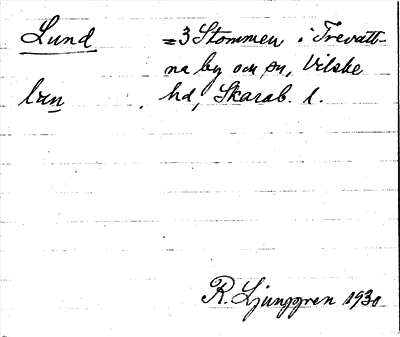 Lund =3 Stommen i Trevatt-
na by och sn, Vilske
hd, Skarab. l.
R. Ljunggren 1930